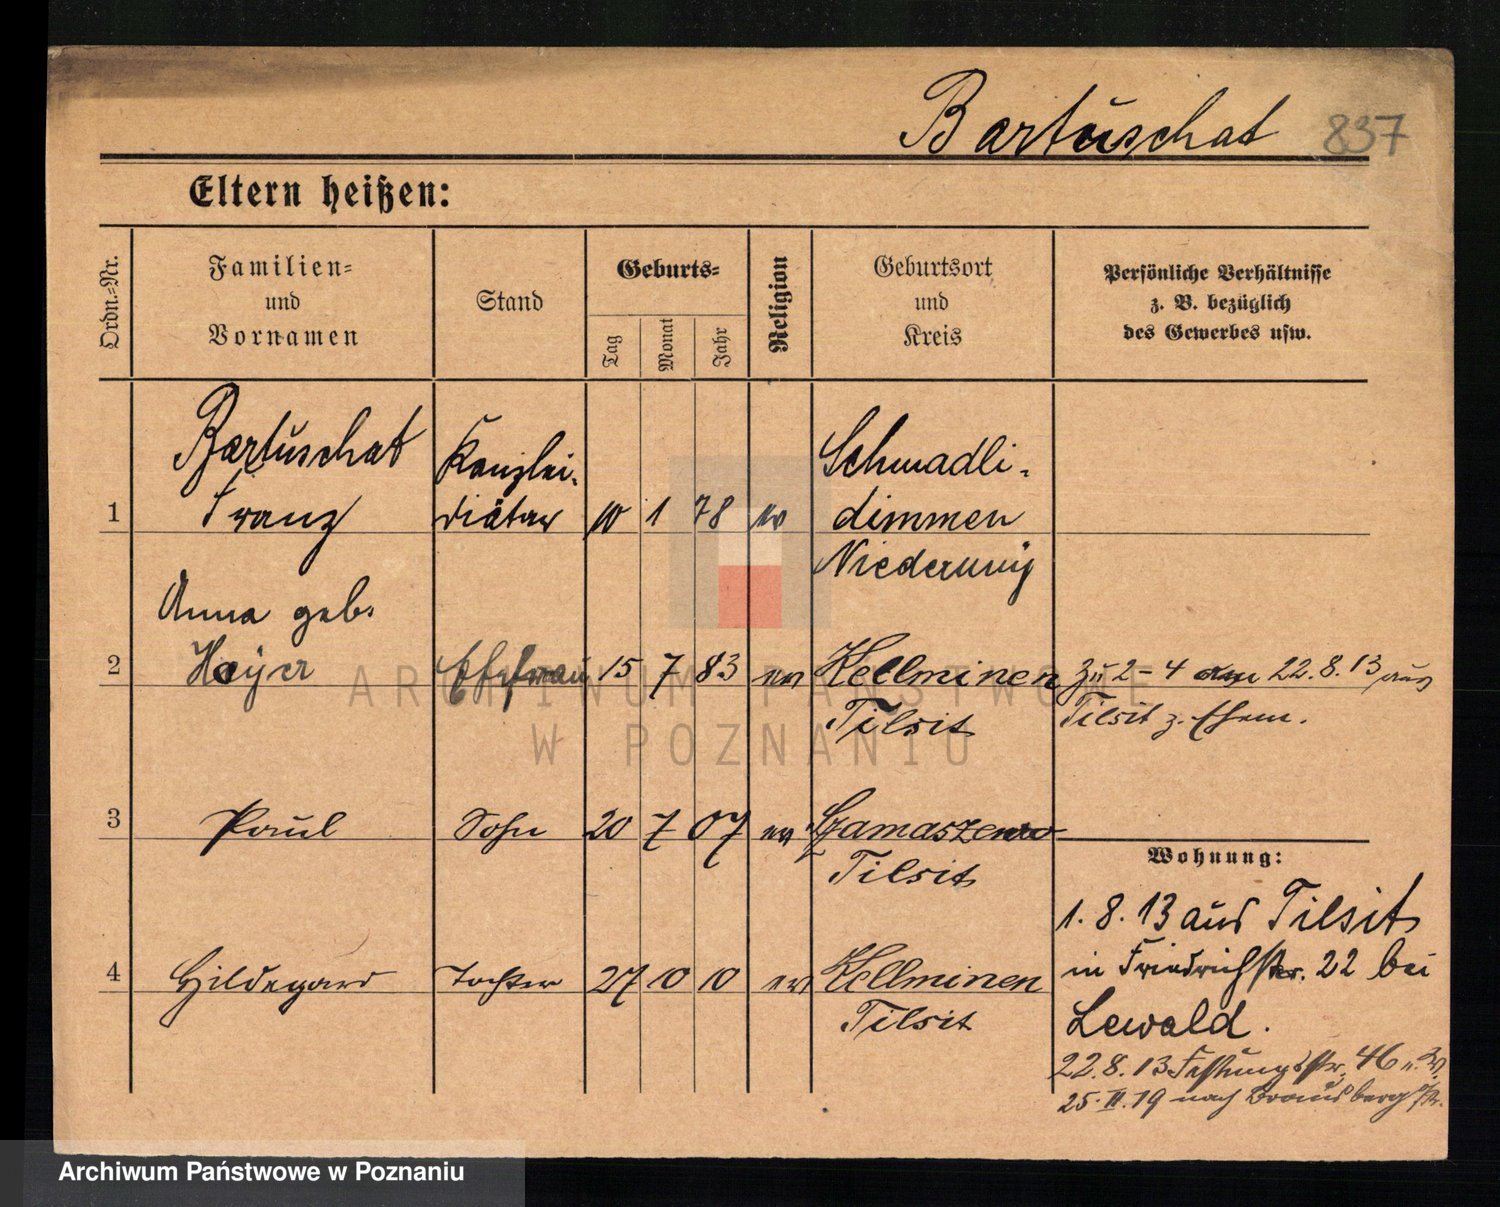 Bartuschat 837
Eltern heißen:
Ordn.-Nr.
Familien=
und
Vornamen
Stand
Geburts=
Tag
Monat
Jahr
Religion
Geburtsort
und
Kreis
Persönliche Verhältnisse
z. B. bezüglich
des Gewerbes usw.
Bartuschat Kanzlei- Schmadli-
1 Franz diätar 10 1 78 ev dimmen
Niederung
Anna geb.
2 Ehefrau 15 7 83 ev Kellminen Zu 2-4 am 22.8.13 aus
Tilsit Tilsit z. Ehem.
3 Paul Sohn 20 7 07 ev
Tilsit
Wohnung:
1.8.13 aus Tilsit
4 Hildegard Tochter 27 10 10 ev Kellminen in Friedrichstr. 22 bei
Tilsit Lewald.
22.8.13 Festungsstr. 46
25.II.19 nach
ARCHIWUM PAŃSTWOWE
W POZNANIU
Archiwum Państwowe w Poznaniu